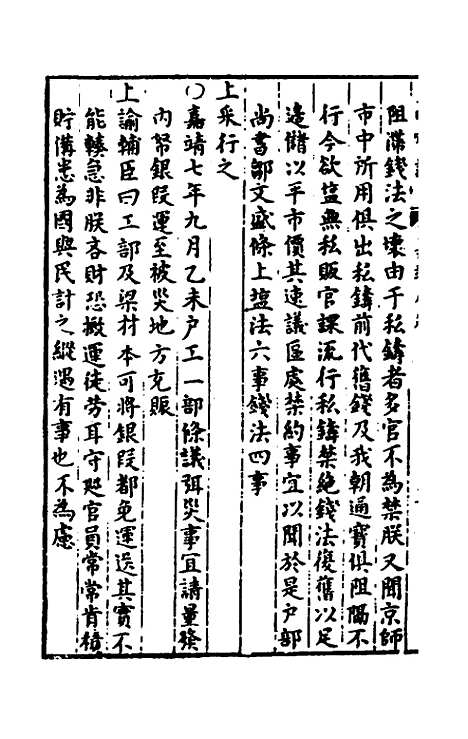 阻滯錢法之壞由于私鑄者多官不為禁朕又聞京師
市中所用俱出私鑄前代舊錢及我朝通寶俱阻隔不
行今欲塩無私販官課流行私鑄禁絶錢法復舊以足
邉儲以平市價其速議區處禁約事宜以聞於是户部
尚書鄒文盛條上塩法六事錢法四事
上采行之
○嘉靖七年九月乙未户工一部條議弭災事宜請量發
内帑銀叚運至被災地方充賑
上諭輔臣曰工部及梁材本可將銀叚都免運送其實不
能輳急非朕吝財恐搬運徒劳耳守廵官員常常肯積
貯備患為國與民計之縱遇有事也不為慮